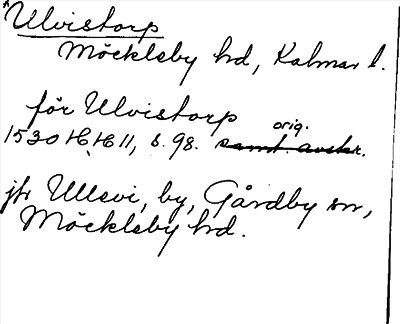 *Ulvistorp
Möcklsby hd, Kalmar l.
för Ulvistorp
orig.
1530 16/6 11, s. 98. samt. avskr.
jfr Ullevi, by, Gårdby sn,
Möcklsby hd.